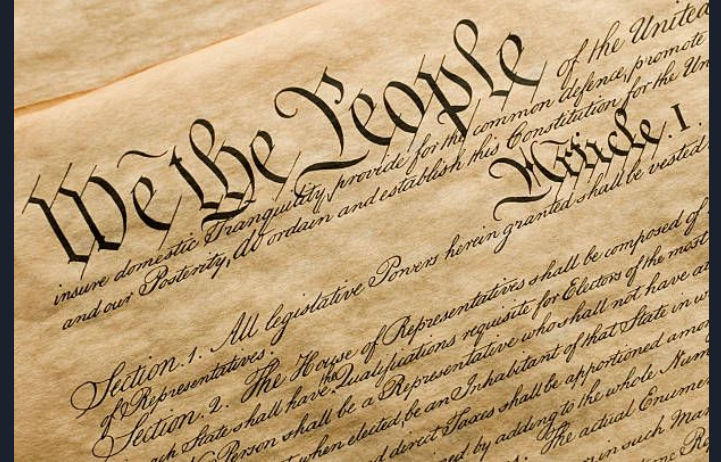 We the People of the United
insure domestic Tranquility, provide for the common defence, promote
and our Posterity, do ordain and establish this Constitution for the Un
Article. I.
Section. 1. All legislative Powers herein granted shall be vested
of Representatives.
Section. 2. The House of Representatives shall be composed of
State shall have the Qualifications requisite for Electors of the most
Person shall be a Representative who shall not have
when elected, be an Inhabitant of that State in w
direct Taxes shall be apportioned amon
by adding to the whole Num
The actual Enumer
in such Man